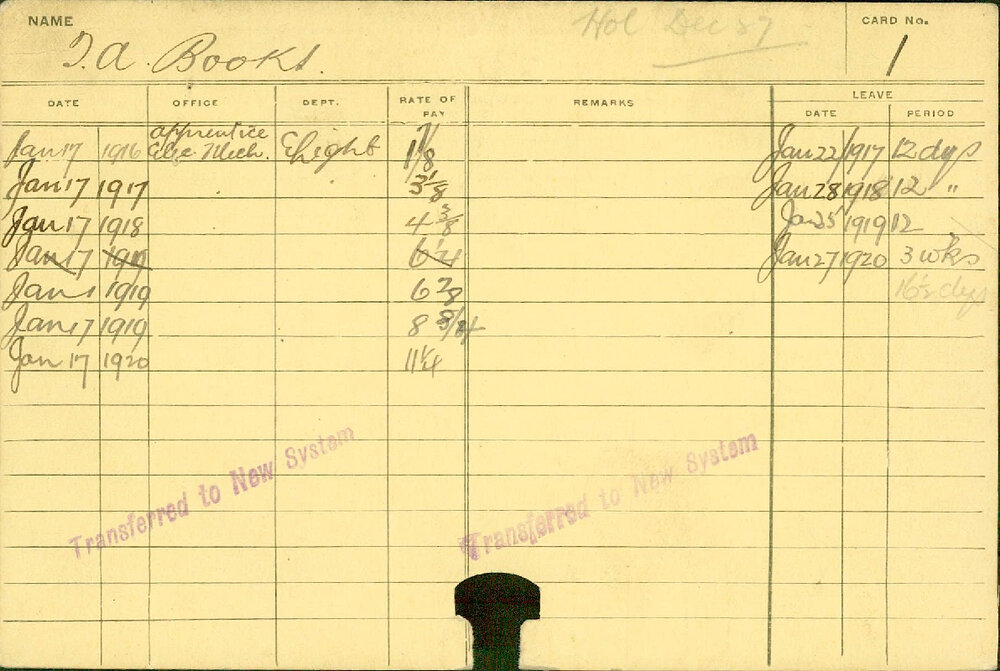 NAME
Hol Dec
CARD No.
T. A. Books.
1
DATE OFFICE DEPT. RATE OF PAY REMARKS LEAVE
DATE PERIOD
apprentice
Jan 17 1916 Elec Mech. ELight 1 1/8 Jan 22/1917 12 dys
Jan 17 1917 3 1/8 Jan 28 1918 12 "
Jan 17 1918 4 3/8 Jan 25 1919 12
Jan 17 1919 6 1/4 Jan 27 1920 3 wks
Jan 1 1919 6 7/8 16 1/2 dys
Jan 17 1919 8
Jan 17 1920 11 1/4
Transferred to New System
Transferred to New System